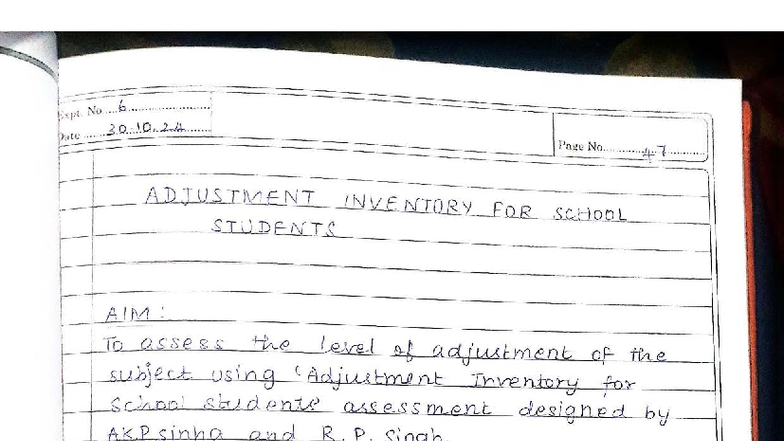 Expt. No. 6
Date 30.10.24
Page No. 47
ADJUSTMENT INVENTORY FOR SCHOOL
STUDENTS
AIM :
To assess the level of adjustment of the
subject using 'Adjustment Inventory for
School students' assessment designed by
AKP sinha and R. P. Singh